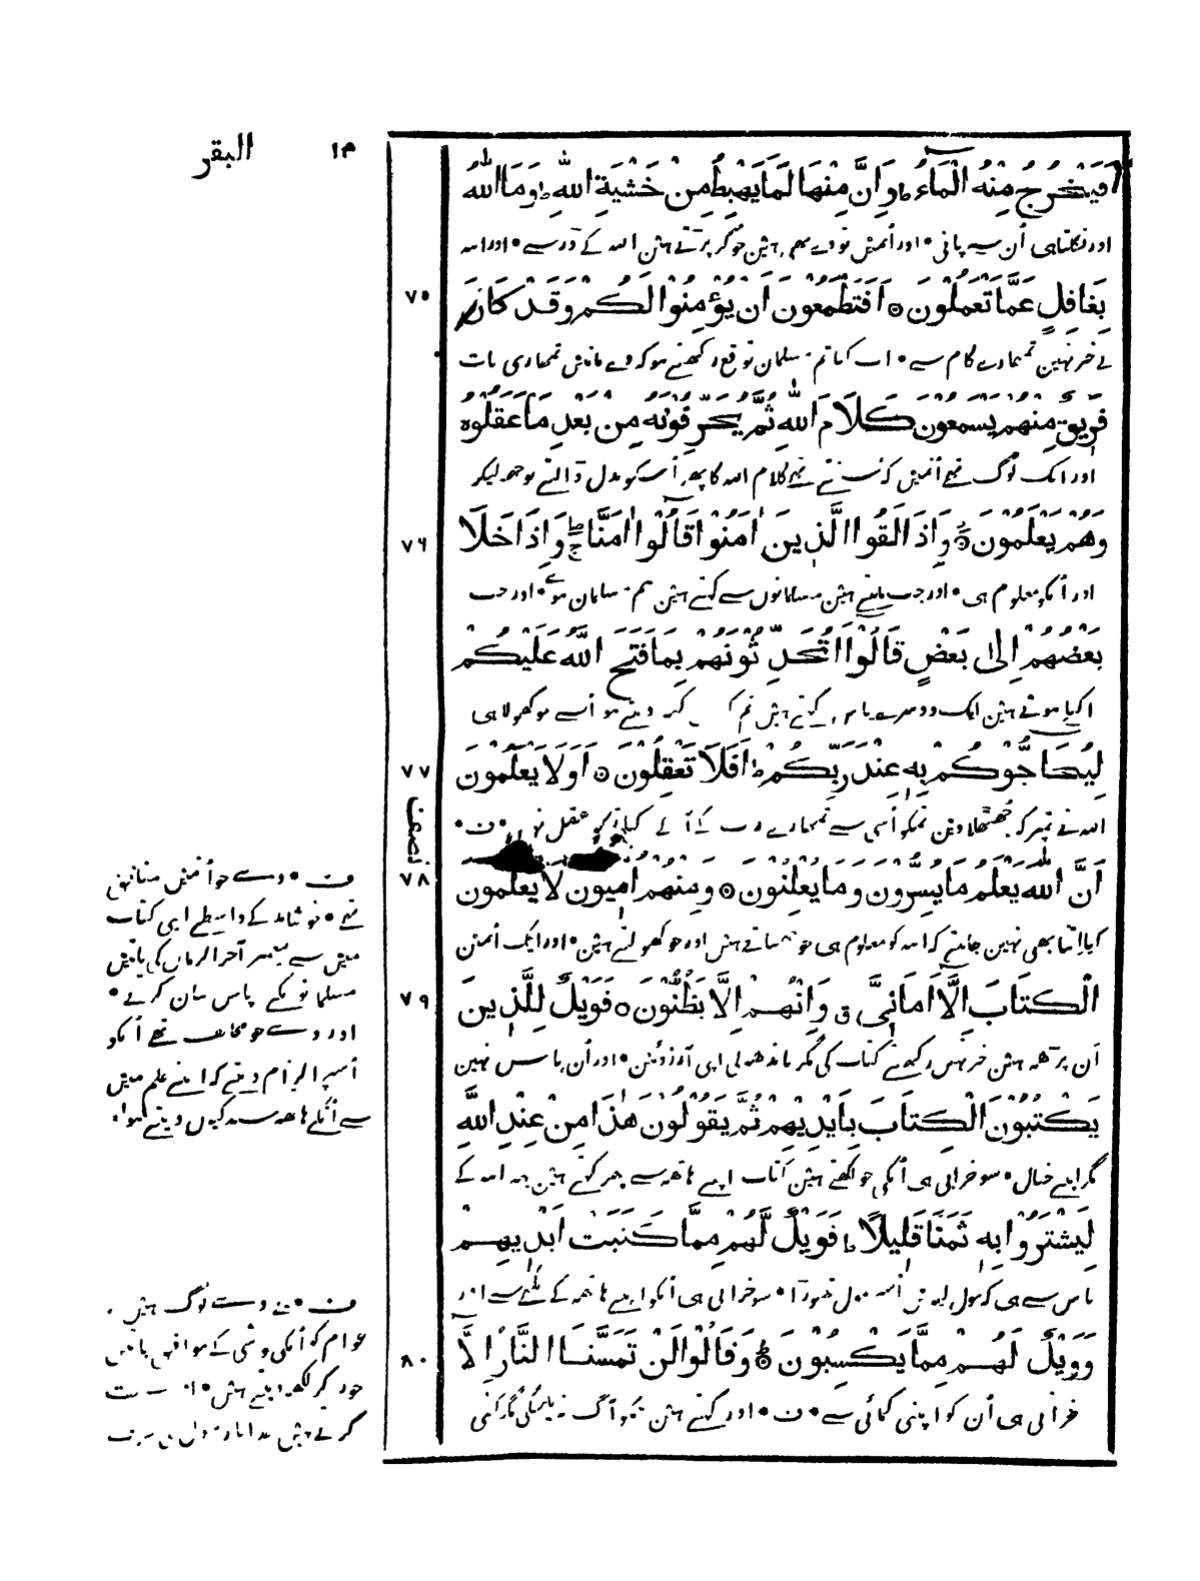 البقر ١٣
فَيَخْرُجُ مِنْهُ الْمَاءُ ط وَاِنَّ مِنْهَا لَمَا يَهْبِطُ مِنْ خَشْيَةِ اللهِ ط وَمَا اللهُ
اور نکلتا ہی اُن سے پانی • اور اُنمیں تو وے بھی ہین جو گر پڑتے ہین اللہ کے ڈر سے • اور اللہ
بِغَافِلٍ عَمَّا تَعْمَلُوْنَ ٥ اَفَتَطْمَعُوْنَ اَنْ يُؤْمِنُوْا لَكُمْ وَقَدْ كَانَ
٧٥
بے خبر نہین تمہارے کام سے • اب کیا تم مسلمان توقع رکھتے ہو کہ وے مانیں تمہاری بات
فَرِيْقٌ مِنْهُمْ يَسْمَعُوْنَ كَلَامَ اللهِ ثُمَّ يُحَرِّفُوْنَهُ مِنْ بَعْدِ مَا عَقَلُوْهُ
اور ایک لوگ تھے اُنمیں کہ سنتے تھے کلام اللہ کا پھر اُسکو بدل ڈالتے بوجھ لیکر
وَهُمْ يَعْلَمُوْنَ ٥ وَاِذَا لَقُوا الَّذِيْنَ اٰمَنُوْا قَالُوْا اٰمَنَّا وَاِذَا خَلَا
٧٦
اور اُنکو معلوم ہی • اور جب ملتے ہین مسلمانوں سے کہتے ہین ہم مسلمان ہوئے • اور جب
بَعْضُهُمْ اِلٰى بَعْضٍ قَالُوْا اَتُحَدِّثُوْنَهُمْ بِمَا فَتَحَ اللهُ عَلَيْكُمْ
اکیلے ہوتے ہین ایک دوسرے پاس کہتے ہین تم کیوں کہہ دیتے ہو اُنسے جو کھولا ہی
لِيُحَاجُّوْكُمْ بِهِ عِنْدَ رَبِّكُمْ ط اَفَلَا تَعْقِلُوْنَ ٥ اَوَلَا يَعْلَمُوْنَ
٧٧
اللہ نے تمپر کہ جُھٹھلا وین تمکو اُسی سے تمہارے رب کے آگے کیا تمکو عقل نہیں • ف •
نصف
اَنَّ اللهَ يَعْلَمُ مَا يُسِرُّوْنَ وَمَا يُعْلِنُوْنَ ٥ وَمِنْهُمْ اُمِّيُّوْنَ لَا يَعْلَمُوْنَ
٧٨
کیا اِتنا بھی نہین جانتے کہ اللہ کو معلوم ہی جو چھپاتے ہین اور جو کھولتے ہین • اور ایک اُنمین
الْكِتَابَ اِلَّا اَمَانِيَّ ق وَاِنْ هُمْ اِلَّا يَظُنُّوْنَ ٥ فَوَيْلٌ لِلَّذِيْنَ
٧٩
اَن پڑھہ ہین خبر نہین رکھتے کتاب کی مگر باندھ لی اپنی آرزوئین • اور اُن پاس نہین
يَكْتُبُوْنَ الْكِتَابَ بِاَيْدِيْهِمْ ثُمَّ يَقُوْلُوْنَ هٰذَا مِنْ عِنْدِ اللهِ
مگر اپنے خیال • سو خرابی ہی اُنکی جو لکھتے ہین کتاب اپنے ہاتھ سے پھر کہتے ہین یہ اللہ کے
لِيَشْتَرُوْا بِهِ ثَمَنًا قَلِيْلًا ط فَوَيْلٌ لَهُمْ مِمَّا كَتَبَتْ اَيْدِيْهِمْ
پاس سے ہی کہ مول لیویں اُس پر مول تھوڑا • سو خرابی ہی اُنکو اپنے ہاتھ کے لکھے سے اور
وَوَيْلٌ لَهُمْ مِمَّا يَكْسِبُوْنَ ٥ وَقَالُوْا لَنْ تَمَسَّنَا النَّارُ اِلَّا
٨٠
خرابی ہی اُن کو اپنی کمائی سے • ف • اور کہتے ہین ہمکو آگ نہ لگیگی مگر کئی
ف • وے جو اُنمیں منافق
تھے • خوشامد کے واسطے اپنی کتاب
میں سے پیغمبر آخر الزماں کی باتیں
مسلمانو نکے پاس بیان کرتے •
اور وے جو مخالف تھے اُنکو
اُسپر الزام دیتے کہ اپنے علم میں
سے اُنکے ہاتھ سند کیوں دیتے ہو •
ف • یے وے لوگ ہیں
عوام کو اُنکی خوشی کے موافق باتیں
جوڑ کر لکھ دیتے ہیں • اور نسبت
کرتے ہیں خدا یا رسول کی طرف